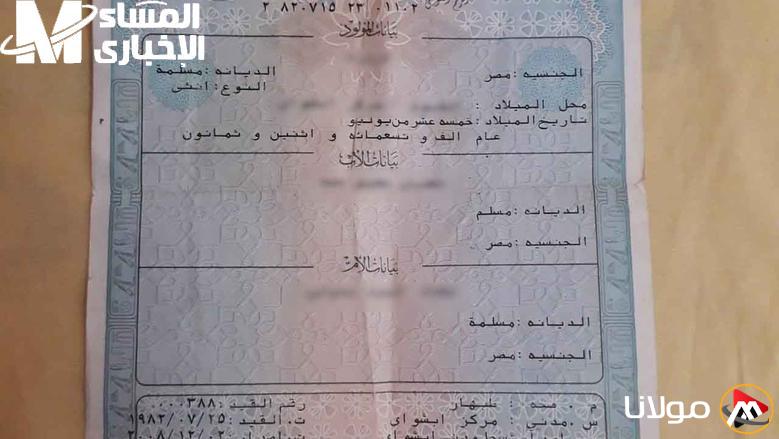 المساء
الإخبارى
٢ ٨٢٠٧١٥ ٢٣ ٠١١٠٢
بيانات المولود
الجنسيه : مصر
الديانه : مسلمة
النوع : أنثى
محل الميلاد :
تاريخ الميلاد : خمسه عشر من يوليو
عام الف و تسعمائه و اثنين و ثمانون
بيانات الأب
الديانه : مسلم
الجنسيه : مصر
بيانات الأم
الديانه : مسلمة
الجنسيه : مصر
رقم القيد : ٠٠٠٠٣٨٨
س . مدني : مركز ابشواى
ت . القيد : ١٩٨٢/٠٧/٢٥
٢٠٠٨/١٢/٠٢
مولانا